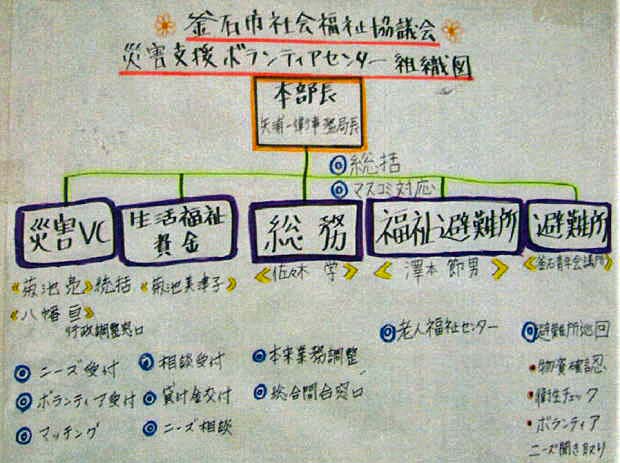 釜石市社会福祉協議会
災害支援ボランティアセンター組織図
本部長
矢浦一衛事務局長
◎総括
◎マスコミ対応
災害VC
生活福祉
資金
総務
福祉避難所
避難所
《菊池亮》総括
《八幡亘》
行政調整窓口
◎ニーズ受付
◎ボランティア受付
◎マッチング
《菊池美津子》
◎相談受付
◎貸付金交付
◎ニーズ相談
《佐々木 学》
◎本来業務調整
◎総合問合窓口
《澤本節男》
◎老人福祉センター
《釜石青年会議所》
◎避難所巡回
・物資確認
・衛生チェック
・ボランティア
ニーズ聞き取り